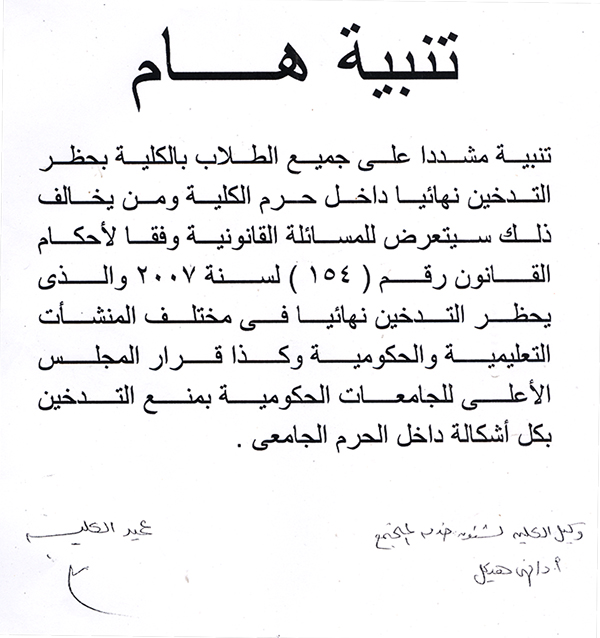 تنبية هـــام
تنبية مشددا على جميع الطلاب بالكلية بحظر
التدخين نهائيا داخل حرم الكلية ومن يخالف
ذلك سيتعرض للمسائلة القانونية وفقا لأحكام
القانون رقم ( ١٥٤ ) لسنة ٢٠٠٧ والذى
يحظر التدخين نهائيا فى مختلف المنشأت
التعليمية والحكومية وكذا قرار المجلس
الأعلى للجامعات الحكومية بمنع التدخين
بكل أشكالة داخل الحرم الجامعى .
وكيل الكلية لشئون خدمة المجتمع
عميد الكلية
هيكل